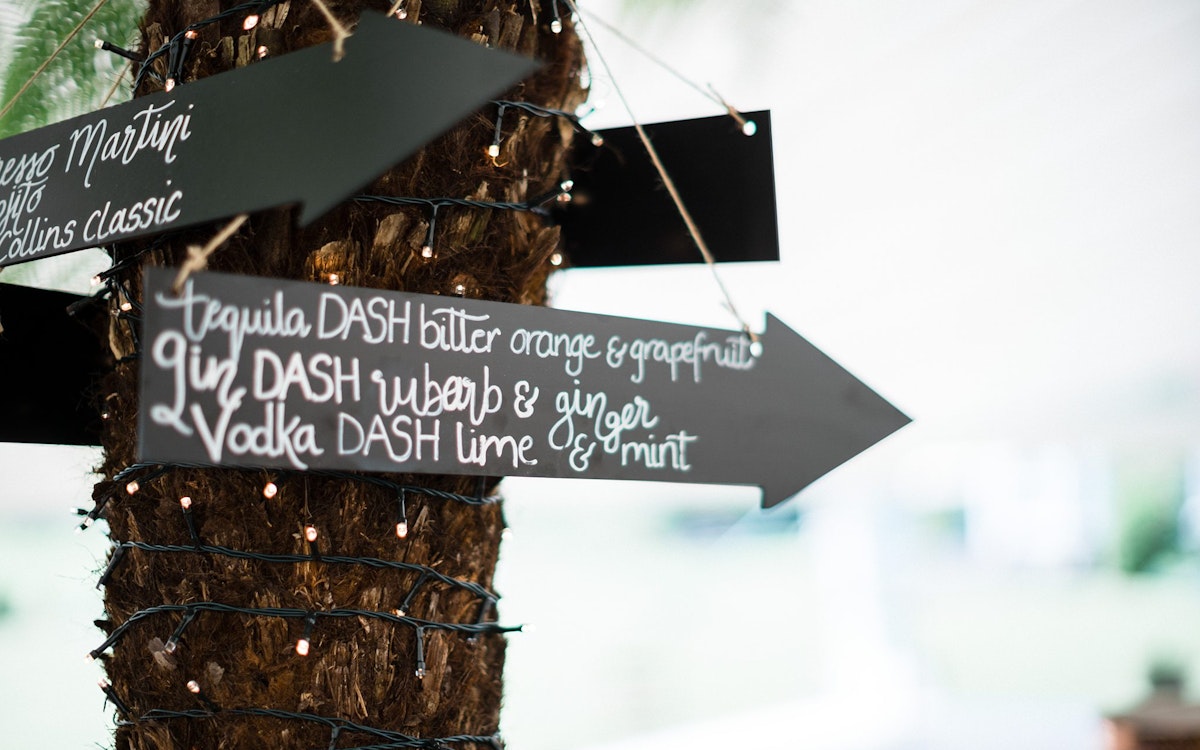 Martini
Collins classic
tequila DASH bitter orange & grapefruit
gin DASH rubarb & ginger
Vodka DASH lime & mint